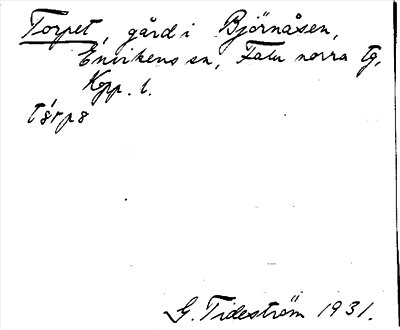 Torpet, gård i Björnåsen,
Envikens sn, Falu norra tg,
Kopp. l.
G. Tideström 1931.